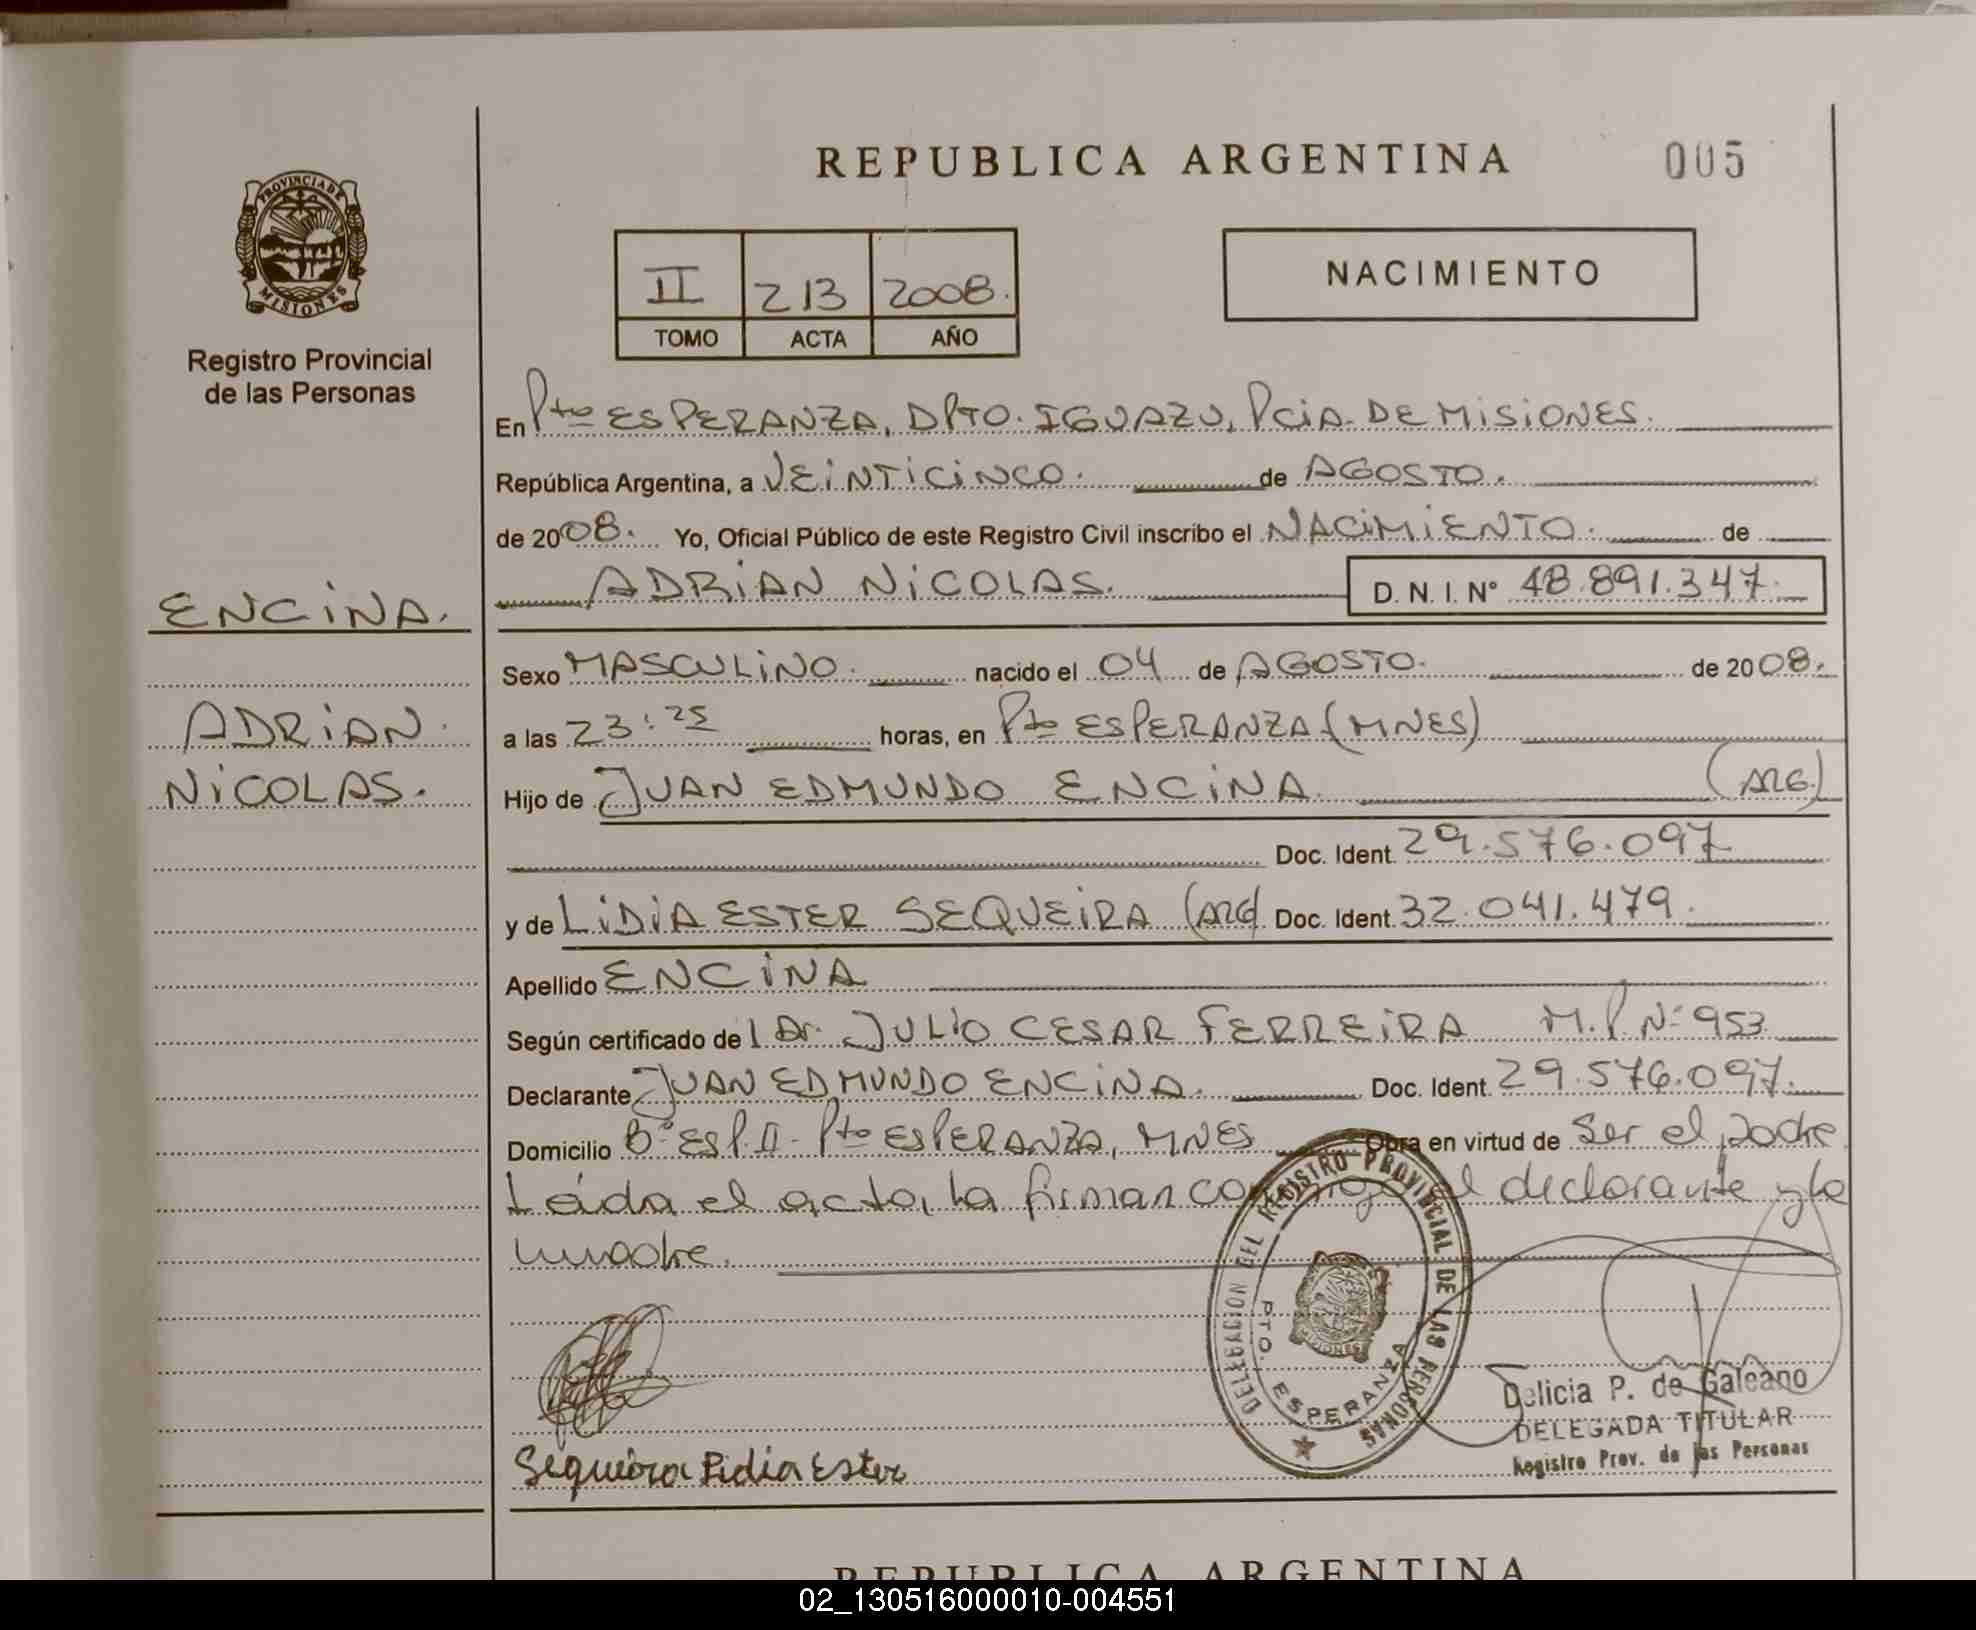 REPUBLICA ARGENTINA
005
PROVINCIA DE
MISIONES
Registro Provincial
de las Personas
II 213 2008.
TOMO ACTA AÑO
NACIMIENTO
En Pto ESPERANZA, DPTO. IGUAZU, PCiA. DE MiSiONES.
República Argentina, a VEiNTiCiNCO. de AGOSTO.
de 2008. Yo, Oficial Público de este Registro Civil inscribo el NACiMiENTO. de
ADRiAN NiCOLAS. D. N. I. N° 48.891.347.
ENCiNA.
ADRiAN.
NiCOLAS.
Sexo MASCULiNO. nacido el 04 de AGOSTO. de 2008.
a las 23:25 horas, en Pto ESPERANZA (MNES)
Hijo de JUAN EDMUNDO ENCiNA. (ARG.)
Doc. Ident. 29.576.097
y de LiDiA ESTER SEQUEiRA (ARG) Doc. Ident. 32.041.479.
Apellido ENCiNA
Según certificado de l Dr. JULiO CESAR FERREiRA M.P. N° 953
Declarante JUAN EDMUNDO ENCiNA. Doc. Ident. 29.576.097.
Domicilio B° ESP. II - Pto ESPERANZA, MNES Obra en virtud de Ser el padre
Leída el acta, la firman conmigo el declarante y la
madre.
DELEGACION DEL REGISTRO PROVINCIAL DE LAS PERSONAS
PTO. ESPERANZA
Delicia P. de Galeano
DELEGADA TITULAR
Registro Prov. de las Personas
Sequeira Lidia Ester
REPUBLICA ARGENTINA
02_130516000010-004551